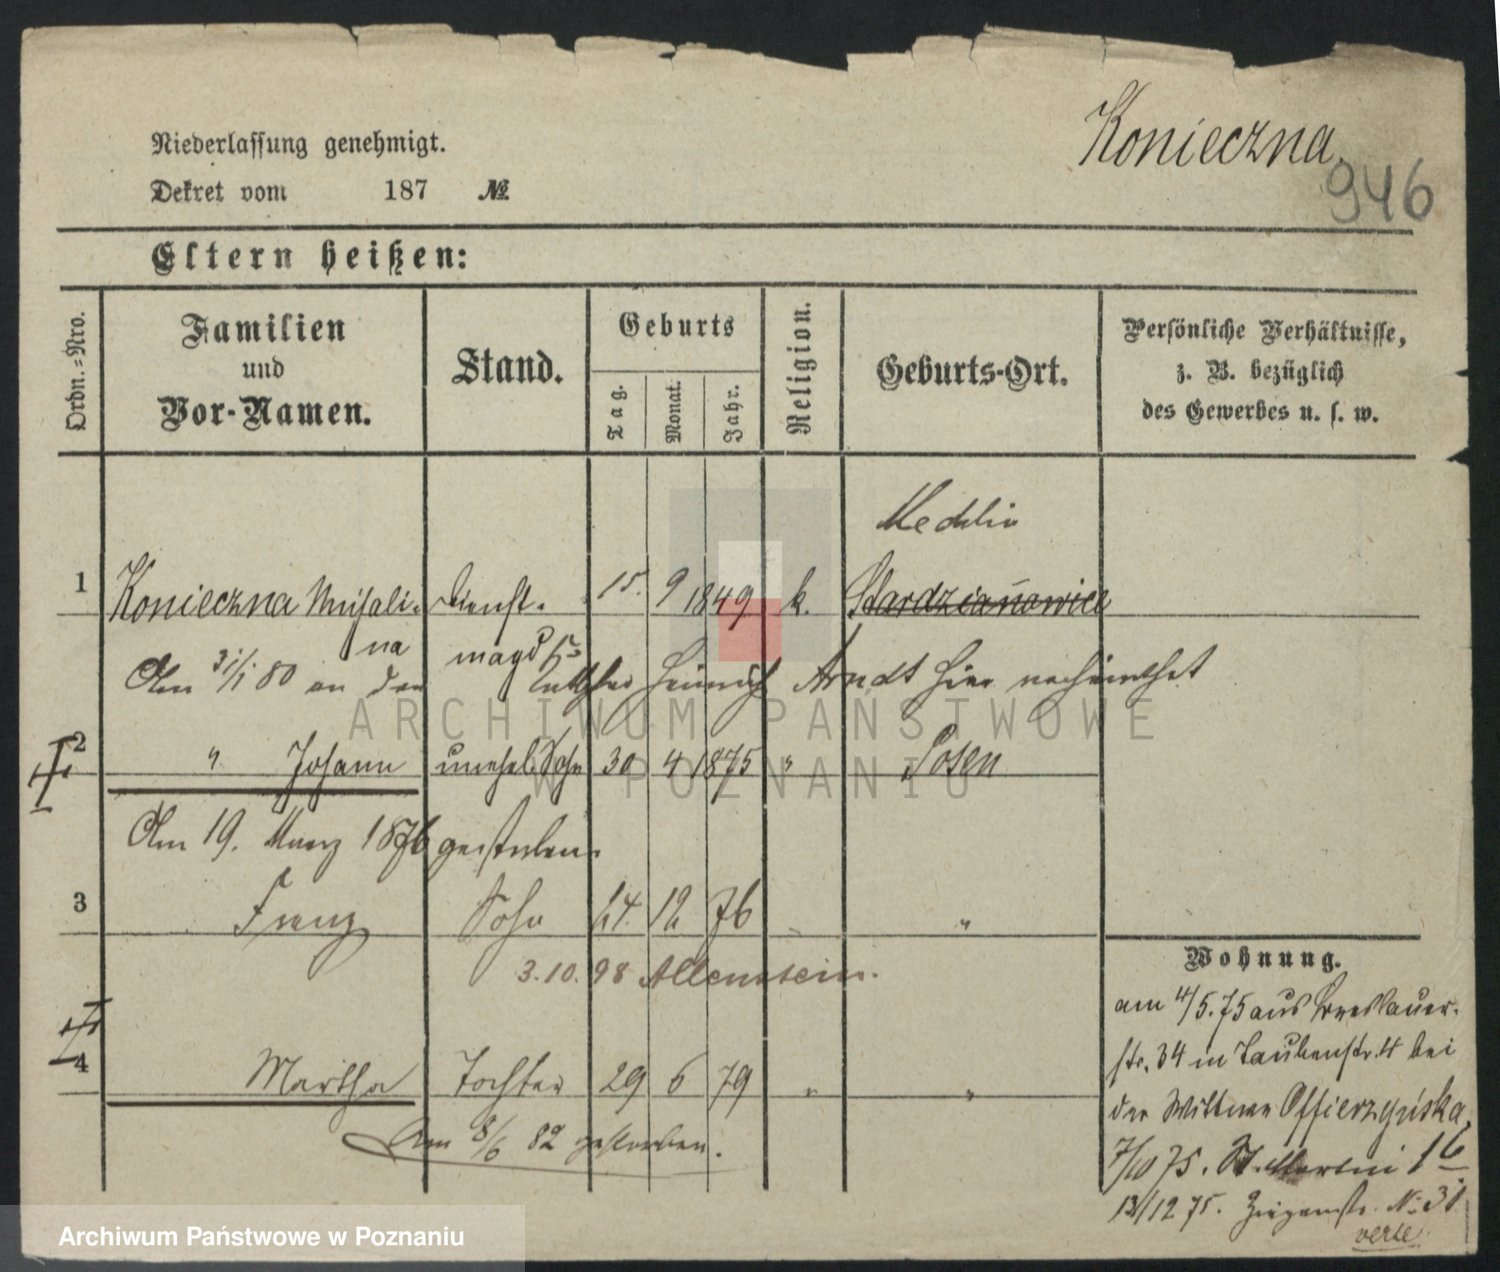 Konieczna.
946
Niederlassung genehmigt.
Dekret vom 187 №
Eltern heißen:
Ordn.=Nro.
Familien
und
Vor-Namen.
Stand.
Geburts
Tag.
Monat.
Jahr.
Religion.
Geburts-Ort.
Persönliche Verhältnisse,
z. B. bezüglich
des Gewerbes u. s. w.
1 Konieczna Dienst- 15. 9 1849 k. Stardzianowice
na magd
Am 31/1 80 an den Heinrich Arndt hier verheirathet
2 " Johann unehel. Sohn 30 4 1875 " Posen
Am 19. Maerz 1876 gestorben.
3 Franz Sohn 24. 12 76 "
3.10.98 Allenstein.
4 Martha Tochter 29 6 79 " "
Am 8/6 82 gestorben.
Wohnung.
am 4/5.75 aus Breslauer-
str. 34 in Taubenstr. 4 bei
der Wittwe Offierzyńska
7/10 75. St. Martin
13/12 75. Ziegenstr. No 31
verte
ARCHIWUM PAŃSTWOWE
W POZNANIU
Archiwum Państwowe w Poznaniu